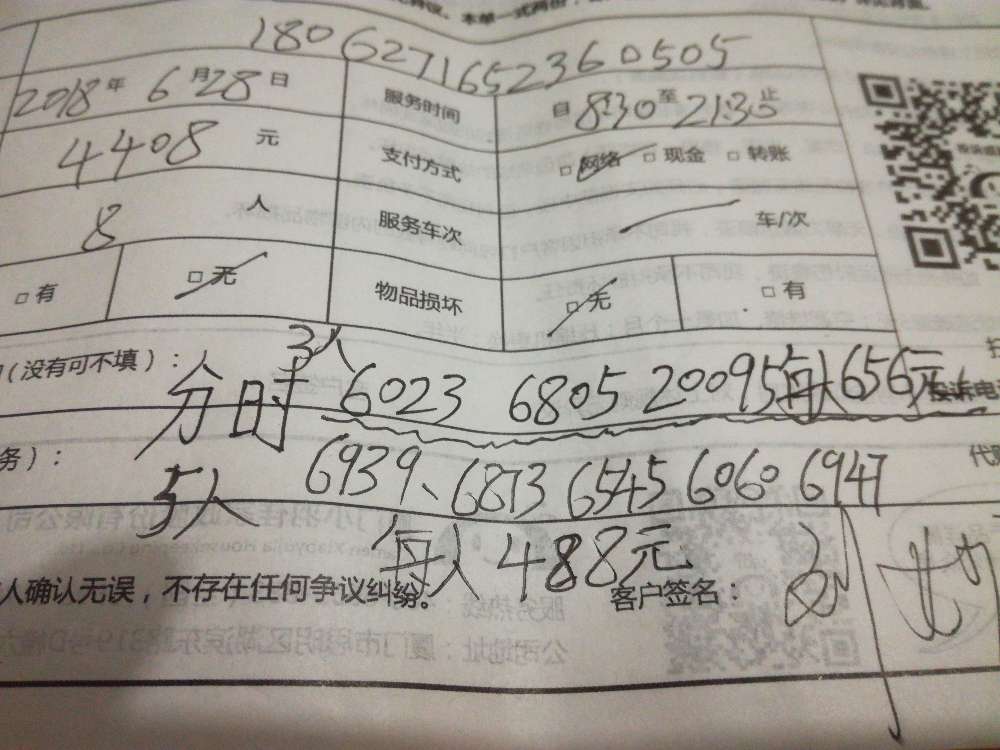 本单一式两份
180627165236 0505
2018年 6月28日 服务时间 自 8:30 至 21:30 止
4408 元 支付方式 □网络 □现金 □转账
8 人 服务车次 车/次
□有 □无 物品损坏 □无 □有
(没有可不填):
3人
分时 6023 6805 20095 每人656元 投诉电
务):
5人 6939、6873 6545 6060 6947 代
每人488元
人确认无误,不存在任何争议纠纷。 客户签名: